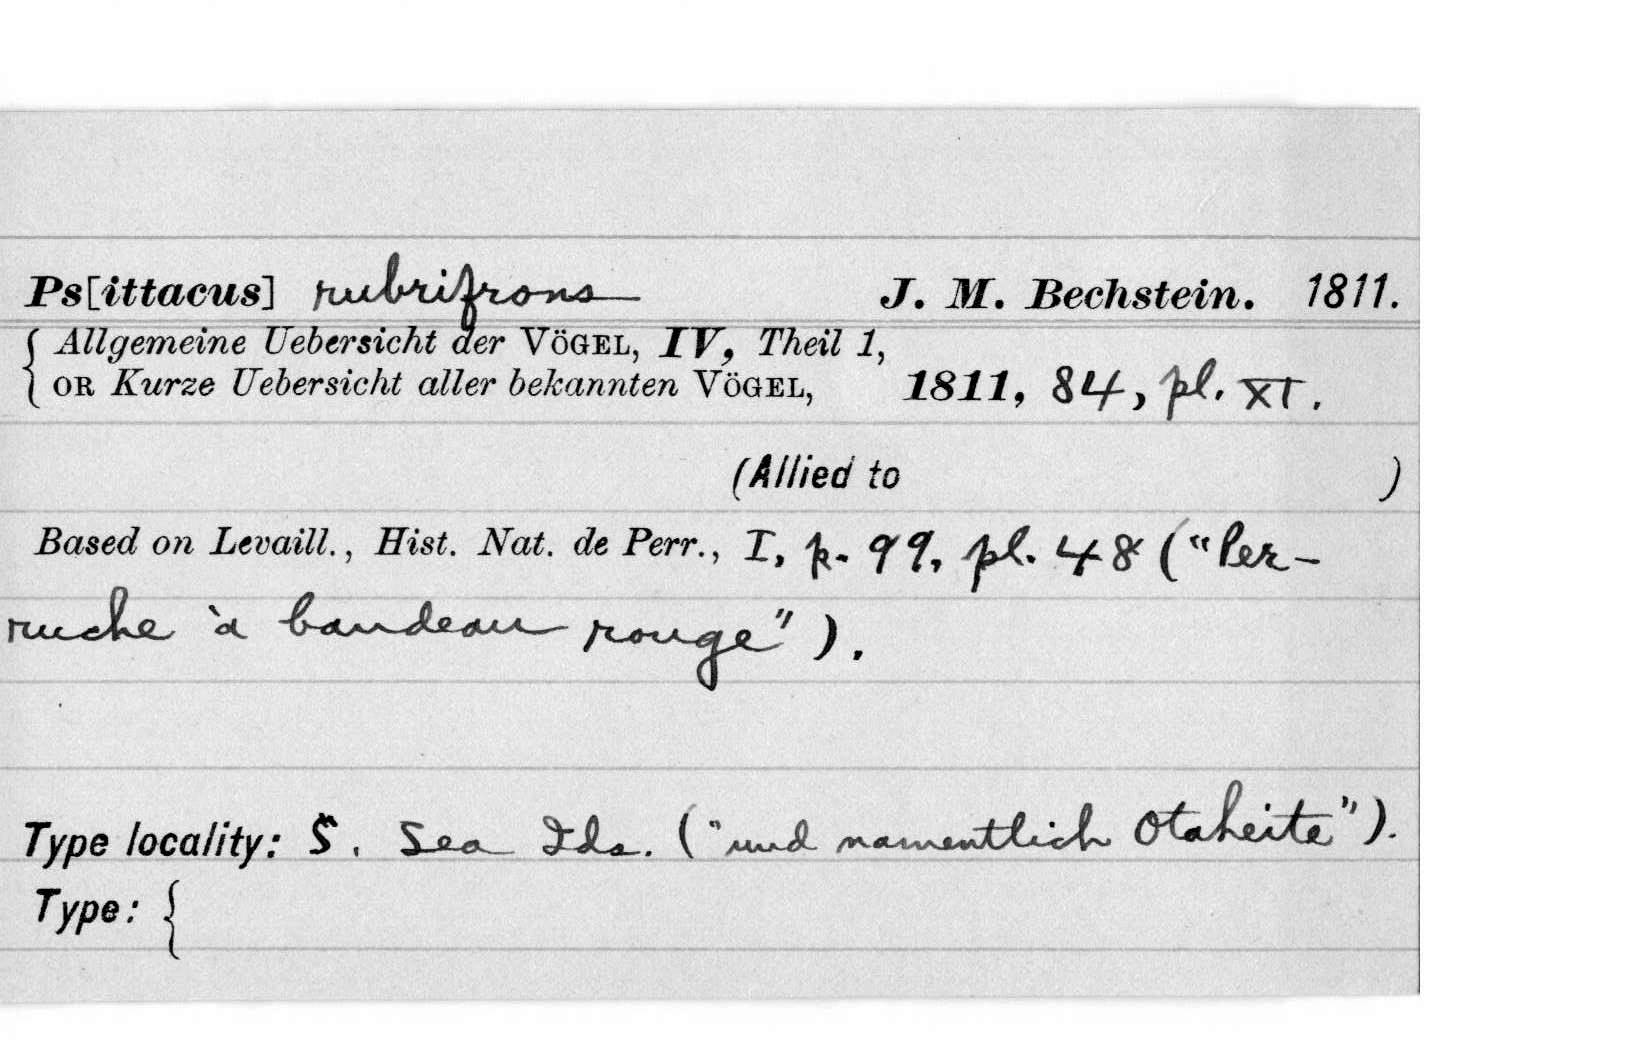 Ps[ittacus] rubrifrons J. M. Bechstein. 1811.
{ Allgemeine Uebersicht der VÖGEL, IV, Theil 1,
OR Kurze Uebersicht aller bekannten VÖGEL, 1811, 84, pl. XI.
(Allied to )
Based on Levaill., Hist. Nat. de Perr., I, p. 99, pl. 48 ("Per-
ruche à bandeau rouge").
Type locality: S. Sea Ids. ("und namentlich Otaheite").
Type: {